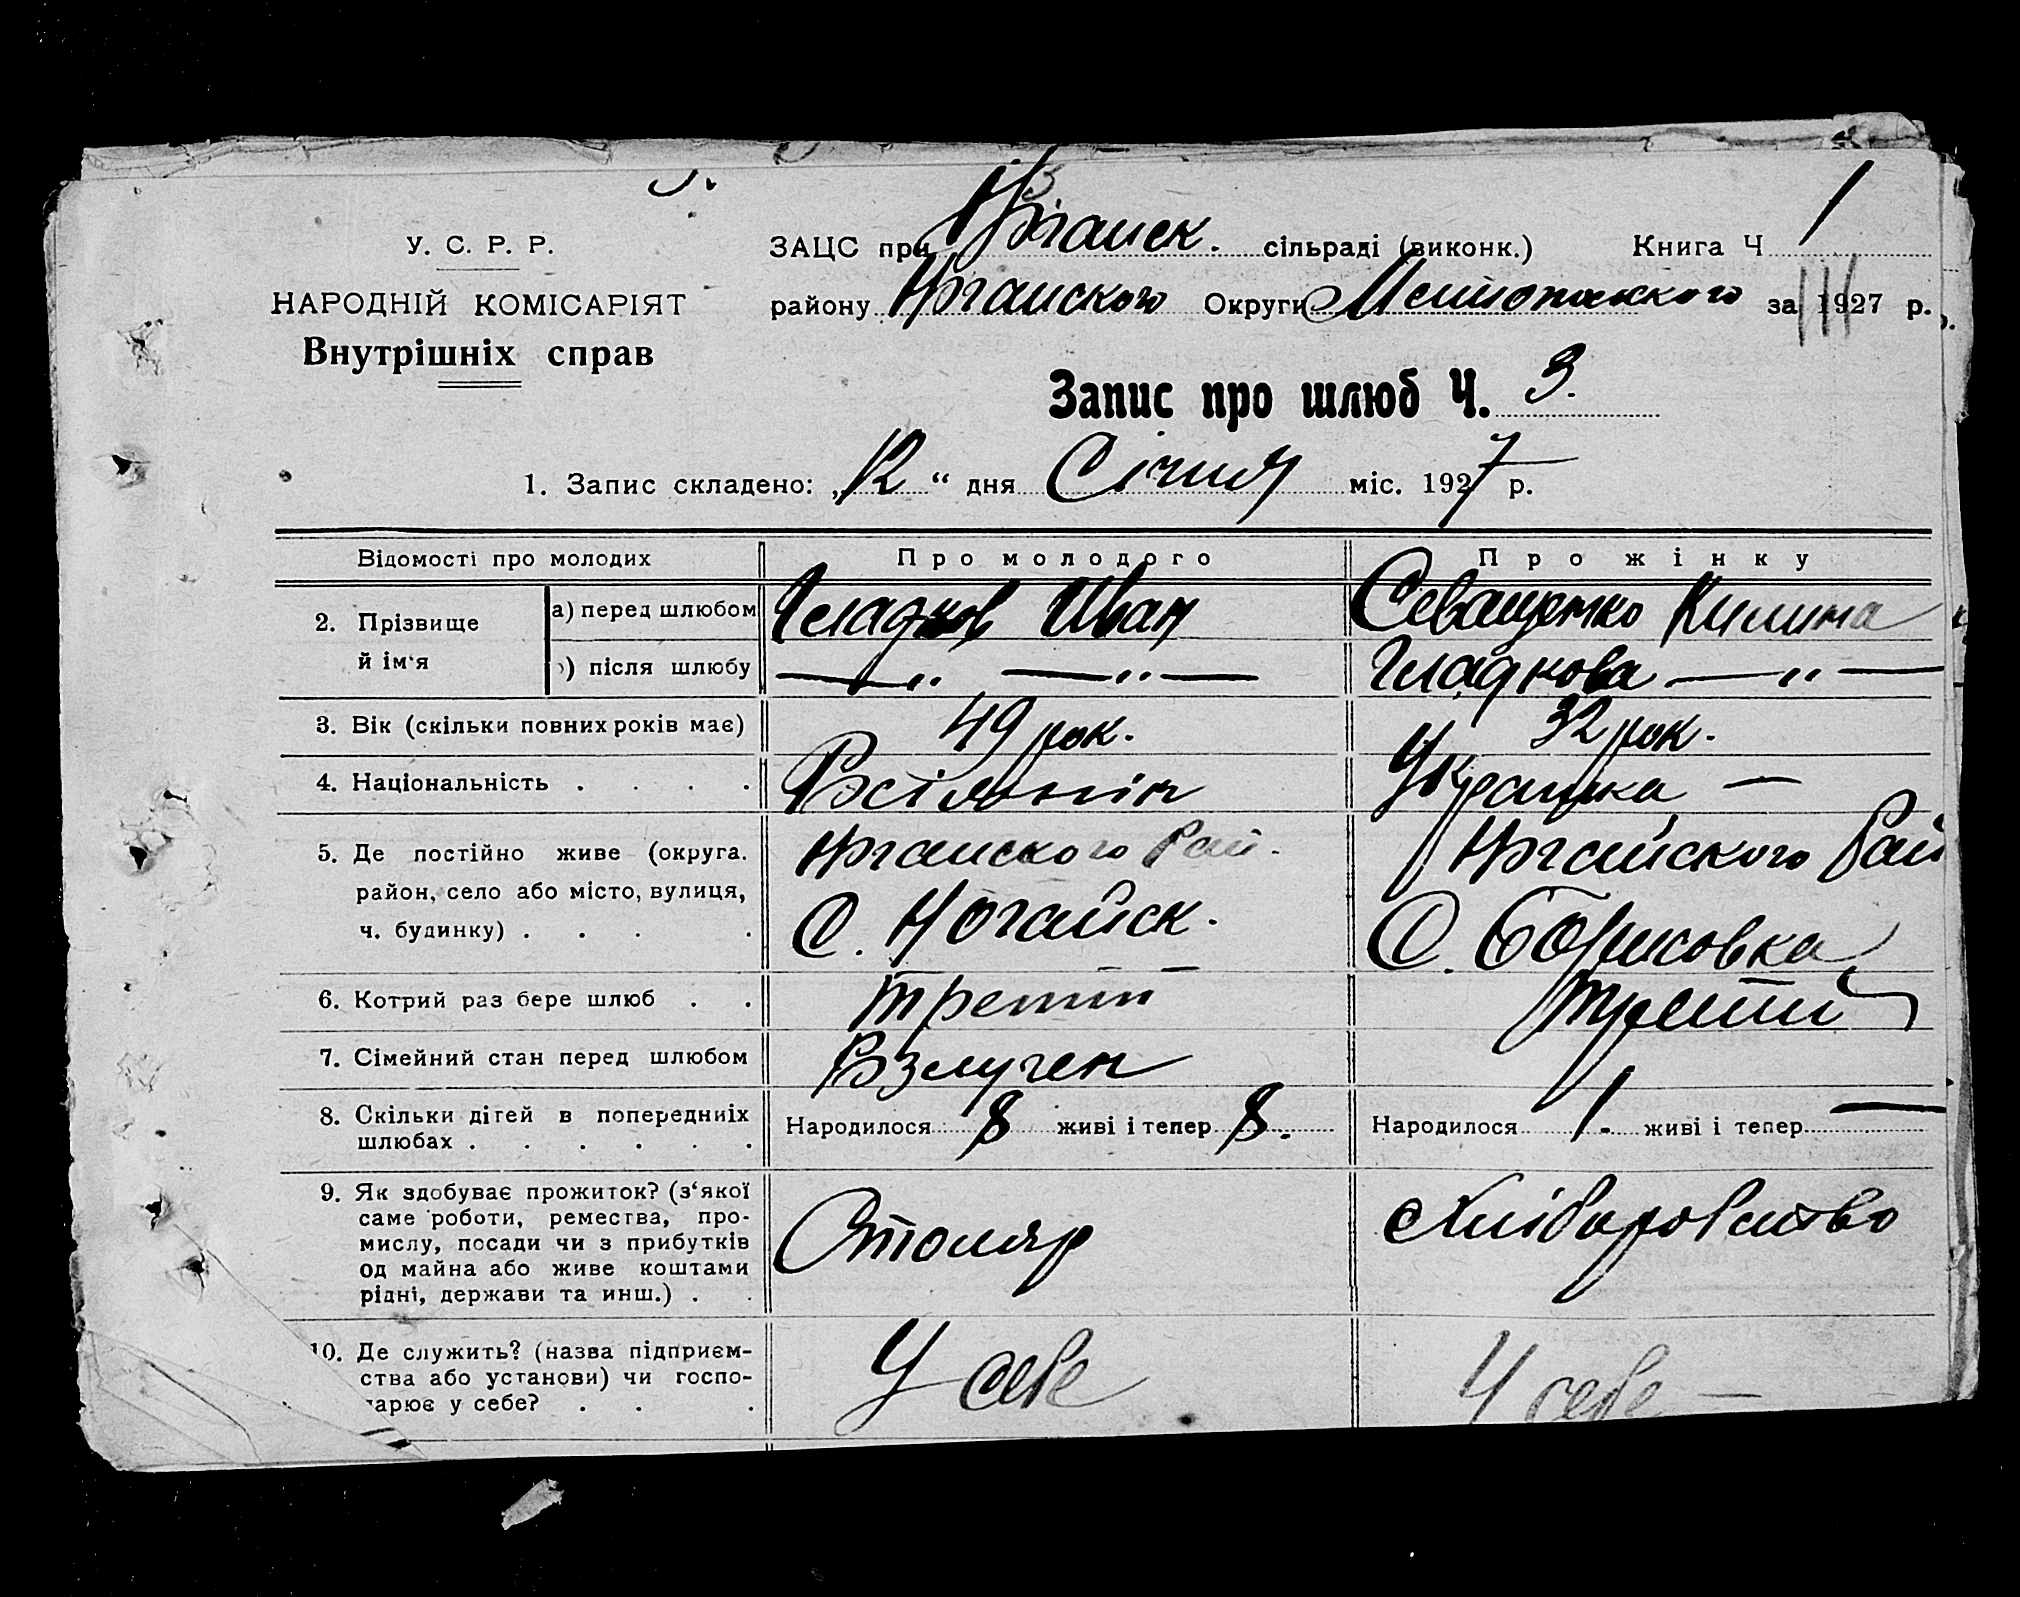 У. С. Р. Р.
НАРОДНІЙ КОМІСАРІЯТ
Внутрішніх справ
ЗАЦС при Ногайск. сільраді (виконк.) Книга Ч 1
району Ногайского Округи Мелітопольского за 1927 р.
Запис про шлюб Ч. 3.
1. Запис складено: „12“ дня Січня міс. 1927 р.
Відомості про молодих Про молодого Про жінку
2. Прізвище й ім‘я
а) перед шлюбом Гладков Иван Севащенко Килина
) після шлюбу —„ —„— Гладкова —„—
3. Вік (скільки повних років має) 49 рок. 32 рок.
4. Національність . . . . Росіянін Украинка —
5. Де постійно живе (округа. Ногайского Рай. Ногайского Рай
район, село або місто, вулиця, С. Ногайск. С. Борисовка
ч. будинку) . . . .
6. Котрий раз бере шлюб . . третій третій
7. Сімейний стан перед шлюбом Розлучен
8. Скільки дітей в попередниіх Народилося 8 живі і тепер 8. Народилося 1. живі і тепер —
шлюбах . . . . . .
9. Як здобуває прожиток? (з‘якої
саме роботи, ремества, про-
мислу, посади чи з прибутків Столяр Хліборобство
од майна або живе коштами
рідні, держави та инш.) . .
10. Де служить? (назва підприєм- У себе У себе —
ства або установи) чи госпо-
дарює у себе? . . .